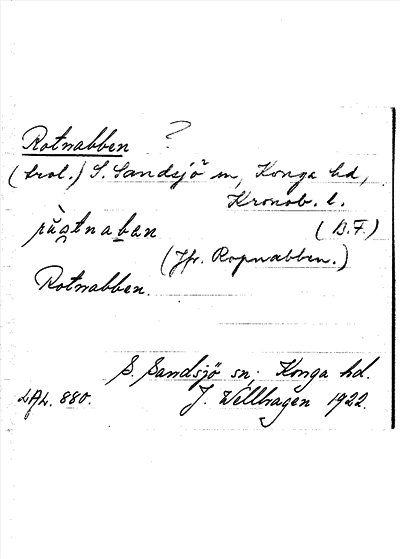 Rotnabben ?
(trol.) S. Sandsjö sn, Konga hd,
Kronob. l.
(B.F.)
(Jfr. Ropnabben.)
Rotnabben.
S. Sandsjö sn. Konga hd.
LAL. 880. J. Wellhagen 1922.